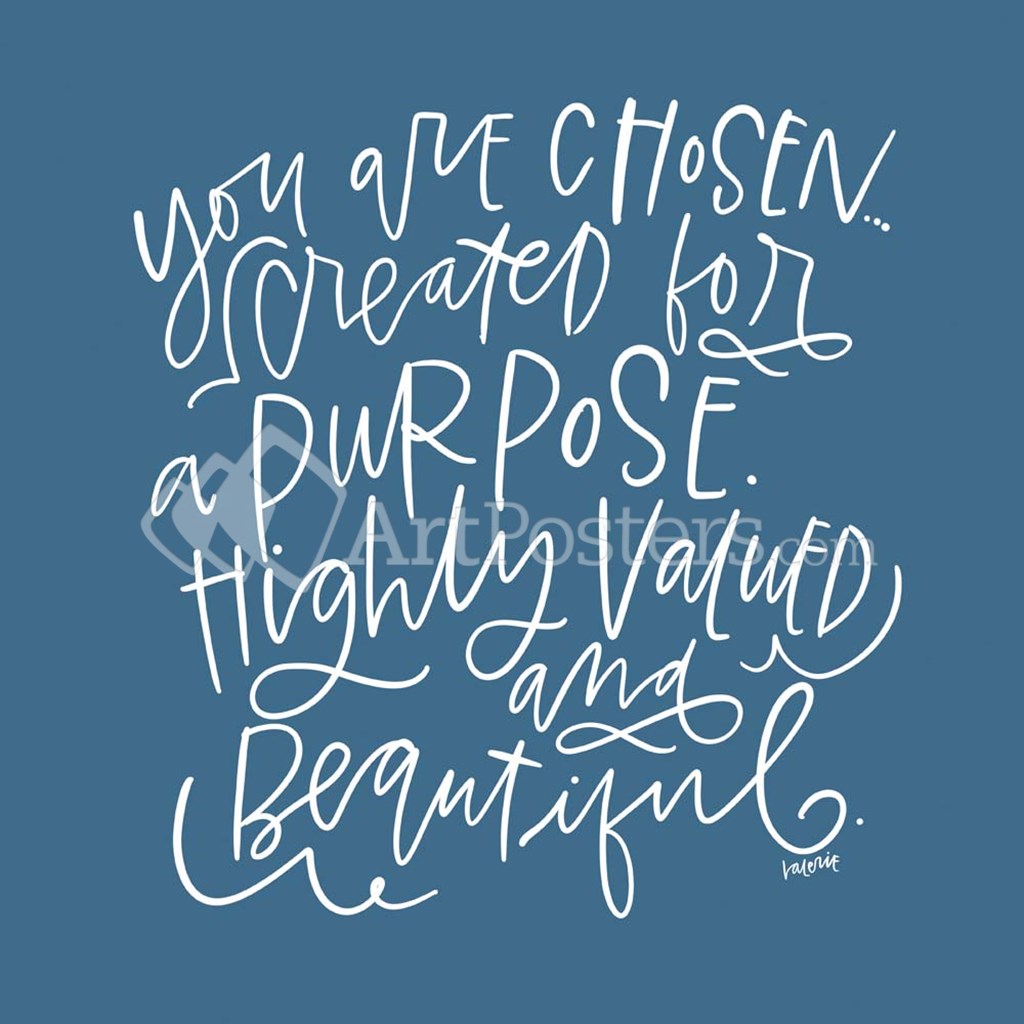 you are CHOSEN...
Created for
a PURPOSE.
Highly Valued
and
Beautiful.
valerie
ArtPosters.com